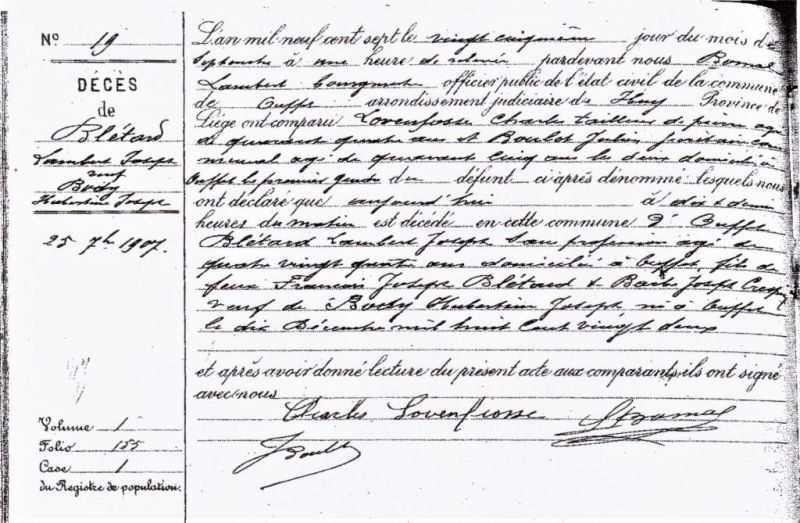 Nº 19
DÉCÈS
de
Blétard
Lambert Joseph
veuf
Body
Hubertine Joseph
25 7bre 1907.
Volume 1
Folio 155
Case 1
du Registre de population.
L'an mil neuf cent sept le vingt cinquième jour du mois de
Septembre à une heure de relevée pardevant nous Bomal
Lambert officier public de l'état civil de la commune
de Ouffet arrondissement judiciaire de Huy Province de
Liége ont comparu Lovenfosse Charles tailleur de pierre agé
de quarante quatre ans et Boulet Julien
agé de quarante cinq ans les deux domiciliés
Ouffet le premier gendre du défunt ci après dénommé lesquels nous
ont déclaré que aujourd'hui à dix
heures du matin est décédé en cette commune d'Ouffet
Blétard Lambert Joseph sans profession agé de
quatre vingt quatre ans domicilié à Ouffet, fils de
feux François Joseph Blétard &
veuf de Body Hubertine Joseph né à Ouffet
le dix Décembre mil huit cent vingt deux
et après avoir donné lecture du présent acte aux comparants, ils ont signé
avec nous
Charles Lovenfosse